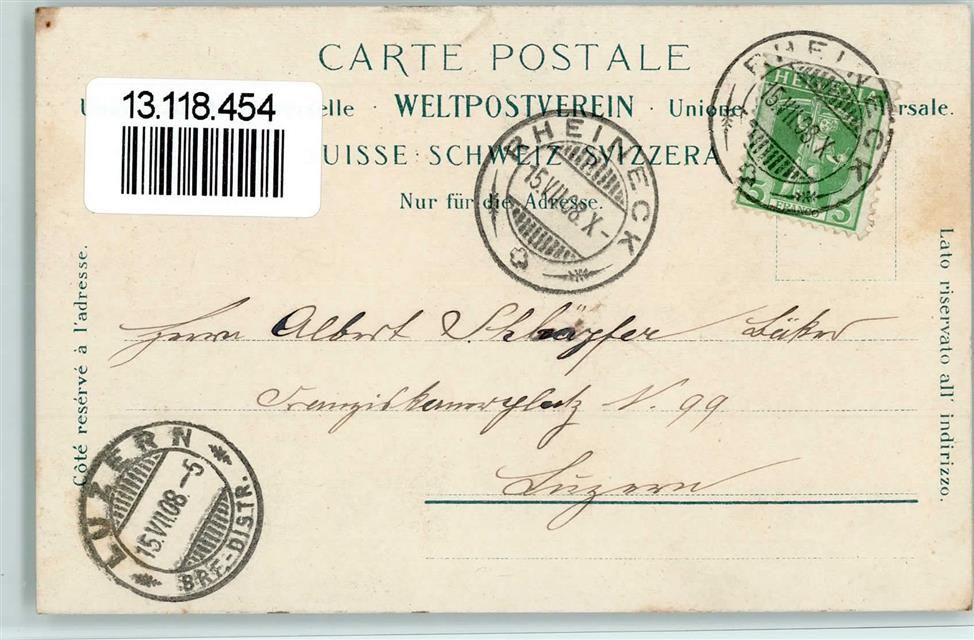 CARTE POSTALE
13.118.454
elle · WELTPOSTVEREIN · Unione ersale.
UISSE · SCHWEIZ · SVIZZERA
Nur für die Adresse.
RHEINECK
15.VII.08.X-
RHEINECK
15.VII.08.X
HELVETIA
5 FRANCO 5
Côté resérvé à l'adresse.
Lato riservato all' indirizzo.
Herrn Albert Schläpfer, Bäker
Franziskanerplatz N. 99
Luzern
LUZERN
15.VII.08.-5
BRF.-DISTR.